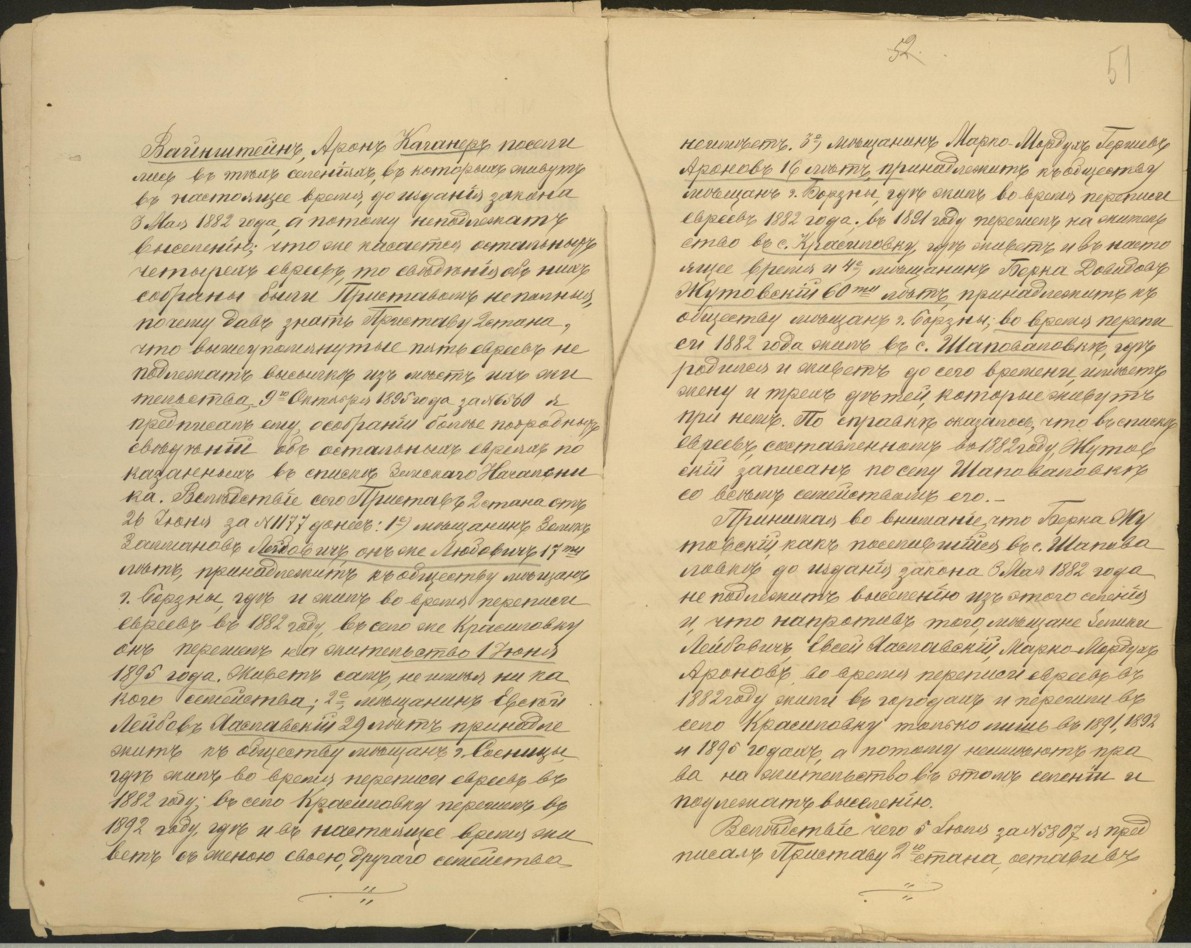 Вайнштейнъ, Аронъ Каганеръ посели
лись въ тѣхъ селеніяхъ, въ которыхъ живутъ
въ настоящее время, до изданія закона
3 Мая 1882 года, а потому неподлежатъ
выселенію; что же касается остальныхъ
четырехъ евреевъ, то свѣдѣнія объ нихъ
собраны были Приставомъ неполныя,
почему давъ знать Приставу 2 стана,
что вышеупомянутые пять евреевъ не
подлежатъ высылкѣ изъ мѣстъ ихъ жи
тельства, 9го Октября 1895 года за №6560 я
предписалъ ему, о собраніи болѣе подробныхъ
свѣдѣній объ остальныхъ евреяхъ по
казанныхъ въ спискѣ Земскаго Начальни
ка. Вслѣдствіе сего Приставъ 2 стана отъ
26 Іюня за №1177 донесъ: 1е) мѣщанинъ Зеликъ
Залмановъ Лейбовичъ, онъ же Любовичъ 17ти
лѣтъ, принадлежитъ къ обществу мѣщанъ
г. Борзны, гдѣ и жилъ во время переписи
евреевъ въ 1882 году, въ село же Красиловку
онъ перешелъ на жительство 1 Іюня
1895 года. Живетъ самъ, не имѣя ни ка
кого семейства; 2е, мѣщанинъ Евсей
Лейбовъ Хаславскій 29 лѣтъ принадле
житъ къ обществу мѣщанъ г.
гдѣ жилъ во время переписи евреевъ въ
1882 году; въ село Красиловку перешелъ въ
1892 году, гдѣ и въ настоящее время жи
ветъ съ женою своею, другаго семейства
52.
51
неимѣетъ. 3е, мѣщанинъ Марко-Мордухъ Гершевъ
Ароновъ 16 лѣтъ, принадлежитъ къ обществу
мѣщанъ г. Борзны, гдѣ жилъ во время переписи
евреевъ 1882 года; въ 1891 году перешелъ на житель
ство въ с. Красиловку, гдѣ живетъ и въ насто
ящее время и 4е, мѣщанинъ Берка Довидовъ
Жутовскій 60ти лѣтъ, принадлежитъ къ
обществу мѣщанъ г. Борзны; во время перепи
си 1882 года жилъ въ с. Шаповаловкѣ, гдѣ
родился и живетъ до сего времени, имѣетъ
жену и трехъ дѣтей, которые живутъ
при немъ. По справкѣ оказалось, что въ спискѣ
евреевъ, составленномъ въ 1882 году Жутов
скій записанъ, по селу Шаповаловкѣ
со всѣмъ семействомъ его.–
Принимая во вниманіе, что Берка Жу
товскій, какъ поселившійся въ с. Шапова
ловкѣ до изданія закона 3 Мая 1882 года
не подлежитъ выселенію изъ этого селенія
и, что напротивъ того, мѣщане Зелики
Лейбовичъ, Евсей Хаславскій, Марко-Мордухъ
Ароновъ, во время переписи евреевъ въ
1882 году жили въ городахъ и перешли въ
село Красиловку только лишь въ 1891, 1892
и 1895 годахъ, а потому неимѣютъ пра
ва на жительство въ этомъ селеніи и
подлежатъ выселенію.
Вслѣдствіе чего 5 Іюля за №5807 я пред
писалъ Приставу 2го стана, оставивъ